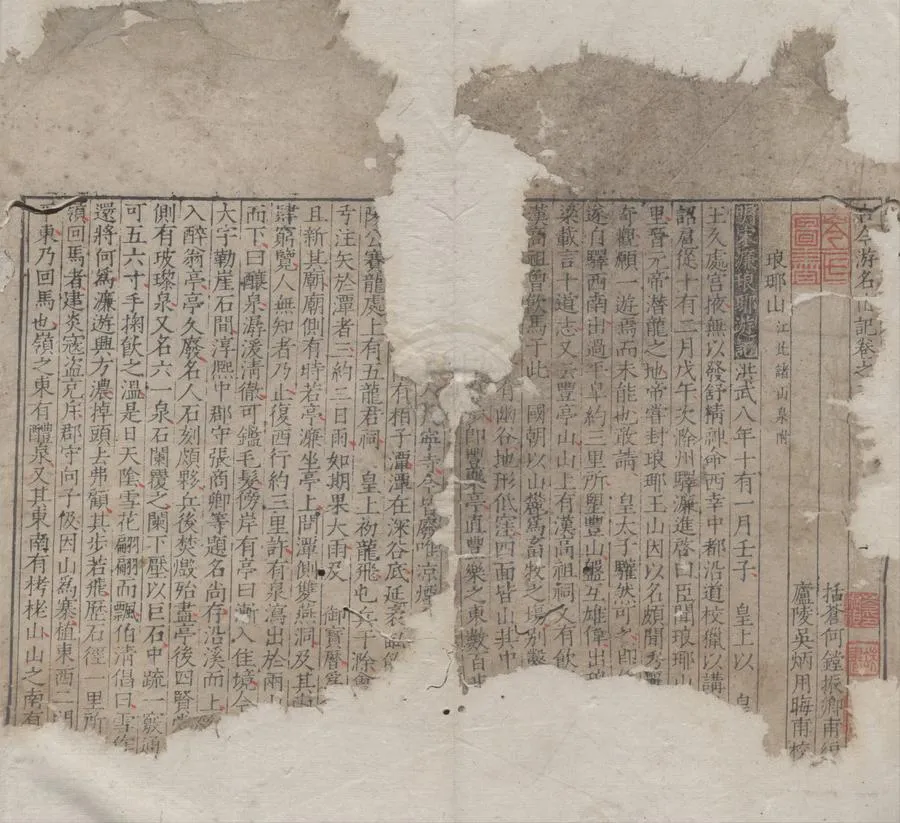 古今游名山記卷之
括蒼何鏜振卿甫編
廬陵吳炳用晦甫校
琅琊山 江北諸山泉附
明宋濂琅琊遊記 洪武八年十有一月壬子 皇上以 皇
王久處宮掖無以發舒精神命西幸中都沿道校獵以講
詔臣從十有二月戊午次滁州驛濂進啓曰臣聞琅琊山
里晉元帝潛龍之地帝嘗封琅琊王山因以名頗聞
奇觀願一遊焉而未能也敢請 皇太子驩然可 即
遂自驛西南出過平皐約三里所望豐山盤互雄偉出
梁載言十道志又云豐亭山山上有漢高祖祠又有飲
漢高祖曾飲馬于此 國朝以山麓為畜牧之場別鑿
有幽谷地形低窪四面皆山其中
即豐樂亭直豐樂之東數百步
寺今皆廢唯涼煙
有栢子潭潭在深谷底延袤畝餘
公賽龍處上有五龍君祠 皇上初龍飛屯兵于滁會
弓注矢於潭者三約三日雨如期果大雨及 御寶曆
且新其廟廟側有時若亭濂坐亭上問潭側雙燕洞及其
肆窮覽人無知者乃止復西行約三里許有泉瀉出於兩山
而下曰釀泉潺湲清徹可鑑毛髮傍岸有亭曰漸入佳境今
大字勒崖石間淳熈中郡守張商卿等題名尚存沿溪而上
入醉翁亭亭久廢名人石刻頗夥兵後焚燬殆盡亭後四賢堂
側有玻瓈泉又名六一泉石闌覆之闌下壓以巨石中疏一竅通
可五六寸手掬飲之溫是日天陰雪花翩翩而飄伯清倡曰雪作
還將何為濂遊興方濃掉頭去弗顧其步若飛歷石徑一里所
嶺回馬者建炎寇盗充斥郡守向子伋因山為寨植東西二門
東乃回馬也嶺之東有醴泉又其東南有栲栳山山之南有